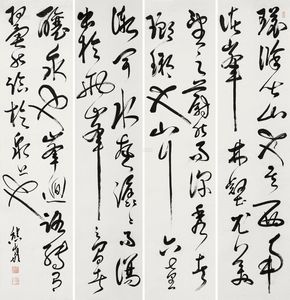 環滁皆山也其西南
諸峰林壑尤美
望之蔚然而深秀者
瑯琊也山行六七里
漸聞水聲潺潺而瀉
出於兩峰之間者
釀泉也峰迴路轉有
翼然臨於泉上